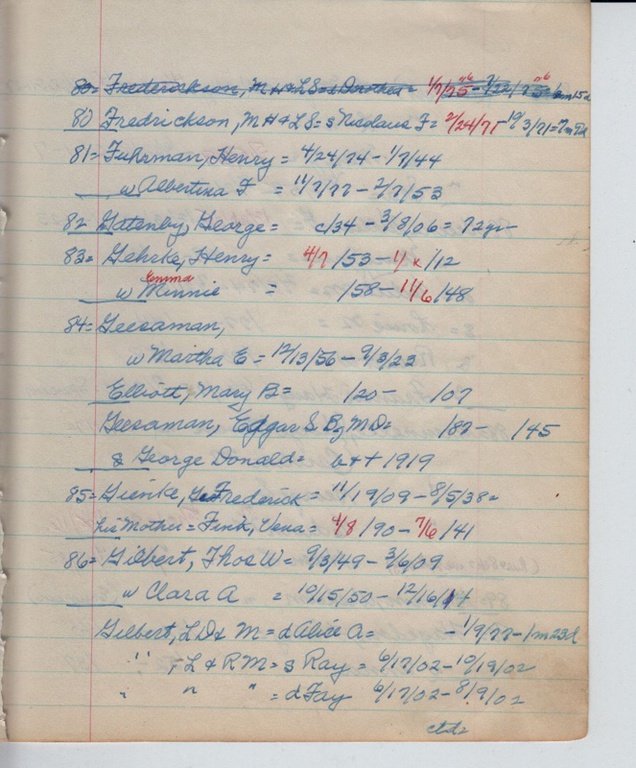 80= Frederickson, M H & L S = d Dorothea =
80 Fredrickson, M H & L S = s Nicolaus F = 2/24/71 - 10/3/71 = 7m
81= Fuhrman, Henry = 4/24/74 - 1/7/44
w Albertina F = 11/7/77 - 2/7/53
82 Gatenby, George = c/34 - 3/8/06 = 72yr
83= Gehrke, Henry = 4/7/53 - 1/x/12
Emma
w Minnie = /58 - 11/6/48
84= Geesaman,
w Martha E = 12/13/56 - 9/3/23
Elliott, Mary B = /20 - /07
Geesaman, Edgar S B, MD = /87 - /45
& George Donald = b++ 1919
85= Gienke, Frederick = 11/19/09 - 8/5/38=
his Mother = Fink, Vena = 4/8/90 - 7/6/41
86= Gilbert, Thos W = 9/3/49 - 3/6/09
w Clara A = 10/15/50 - 12/16/1+
Gilbert, L D & M = d Alice A = - 1/9/77 - 1m23d
" L & R M = s Ray = 6/17/02 - 10/19/02
" " " = d Fay 6/17/02 - 8/9/02
ctd=